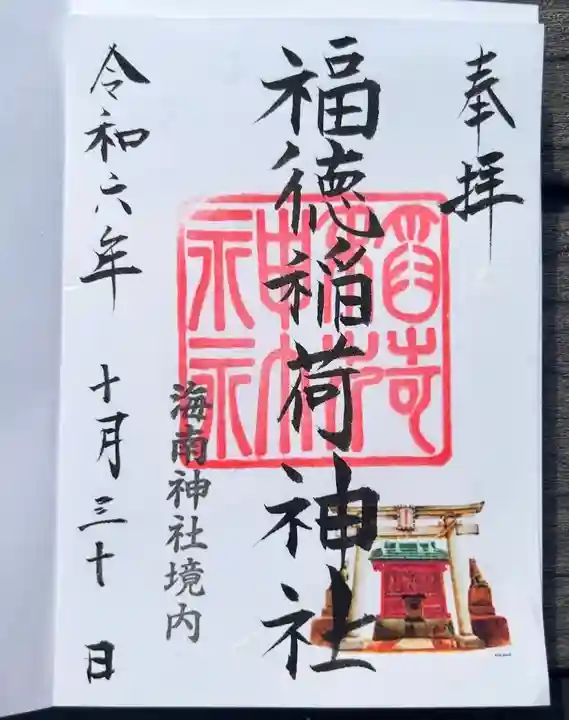 奉拝
福徳稲荷神社
海南神社境内
令和六年 十月三十日